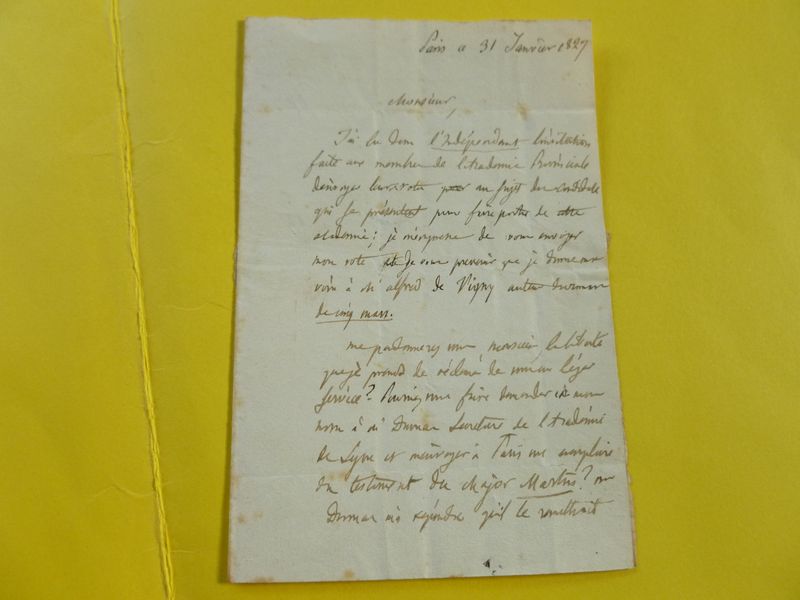 Paris ce 31 Janvier 1827
Monsieur,
J'ai lu dans l'Indépendant l'invitation
faite aux membres de l'academie Provinciale
d'envoyer leur vote au sujet des candidats
qui se présentent pour faire partie de cette
academie; je m'empresse de vous envoyer
mon vote, et de vous prevenir que je donne ma
voix à Mr alfred de Vigny auteur du roman
de cinq mars.
me pardonnerez vous monsieur, la liberté
que je prends de réclamer de vous un léger
service? Pourriez vous faire demander en mon
nom à Mr Dumas Secretaire de l'Academie
de Lyon et m'envoyer à Paris un exemplaire
du testament du Major Martin? Mr
Dumas m'a répondu qu'il le remettrait